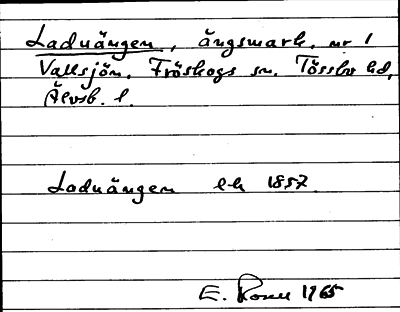 Laduängen, ängsmark, nr 1
Vallsjön, Fröskogs sn. Tössbo hd,
Älvsb. l.
Laduängen lk 1857.
E. Rosell 1965